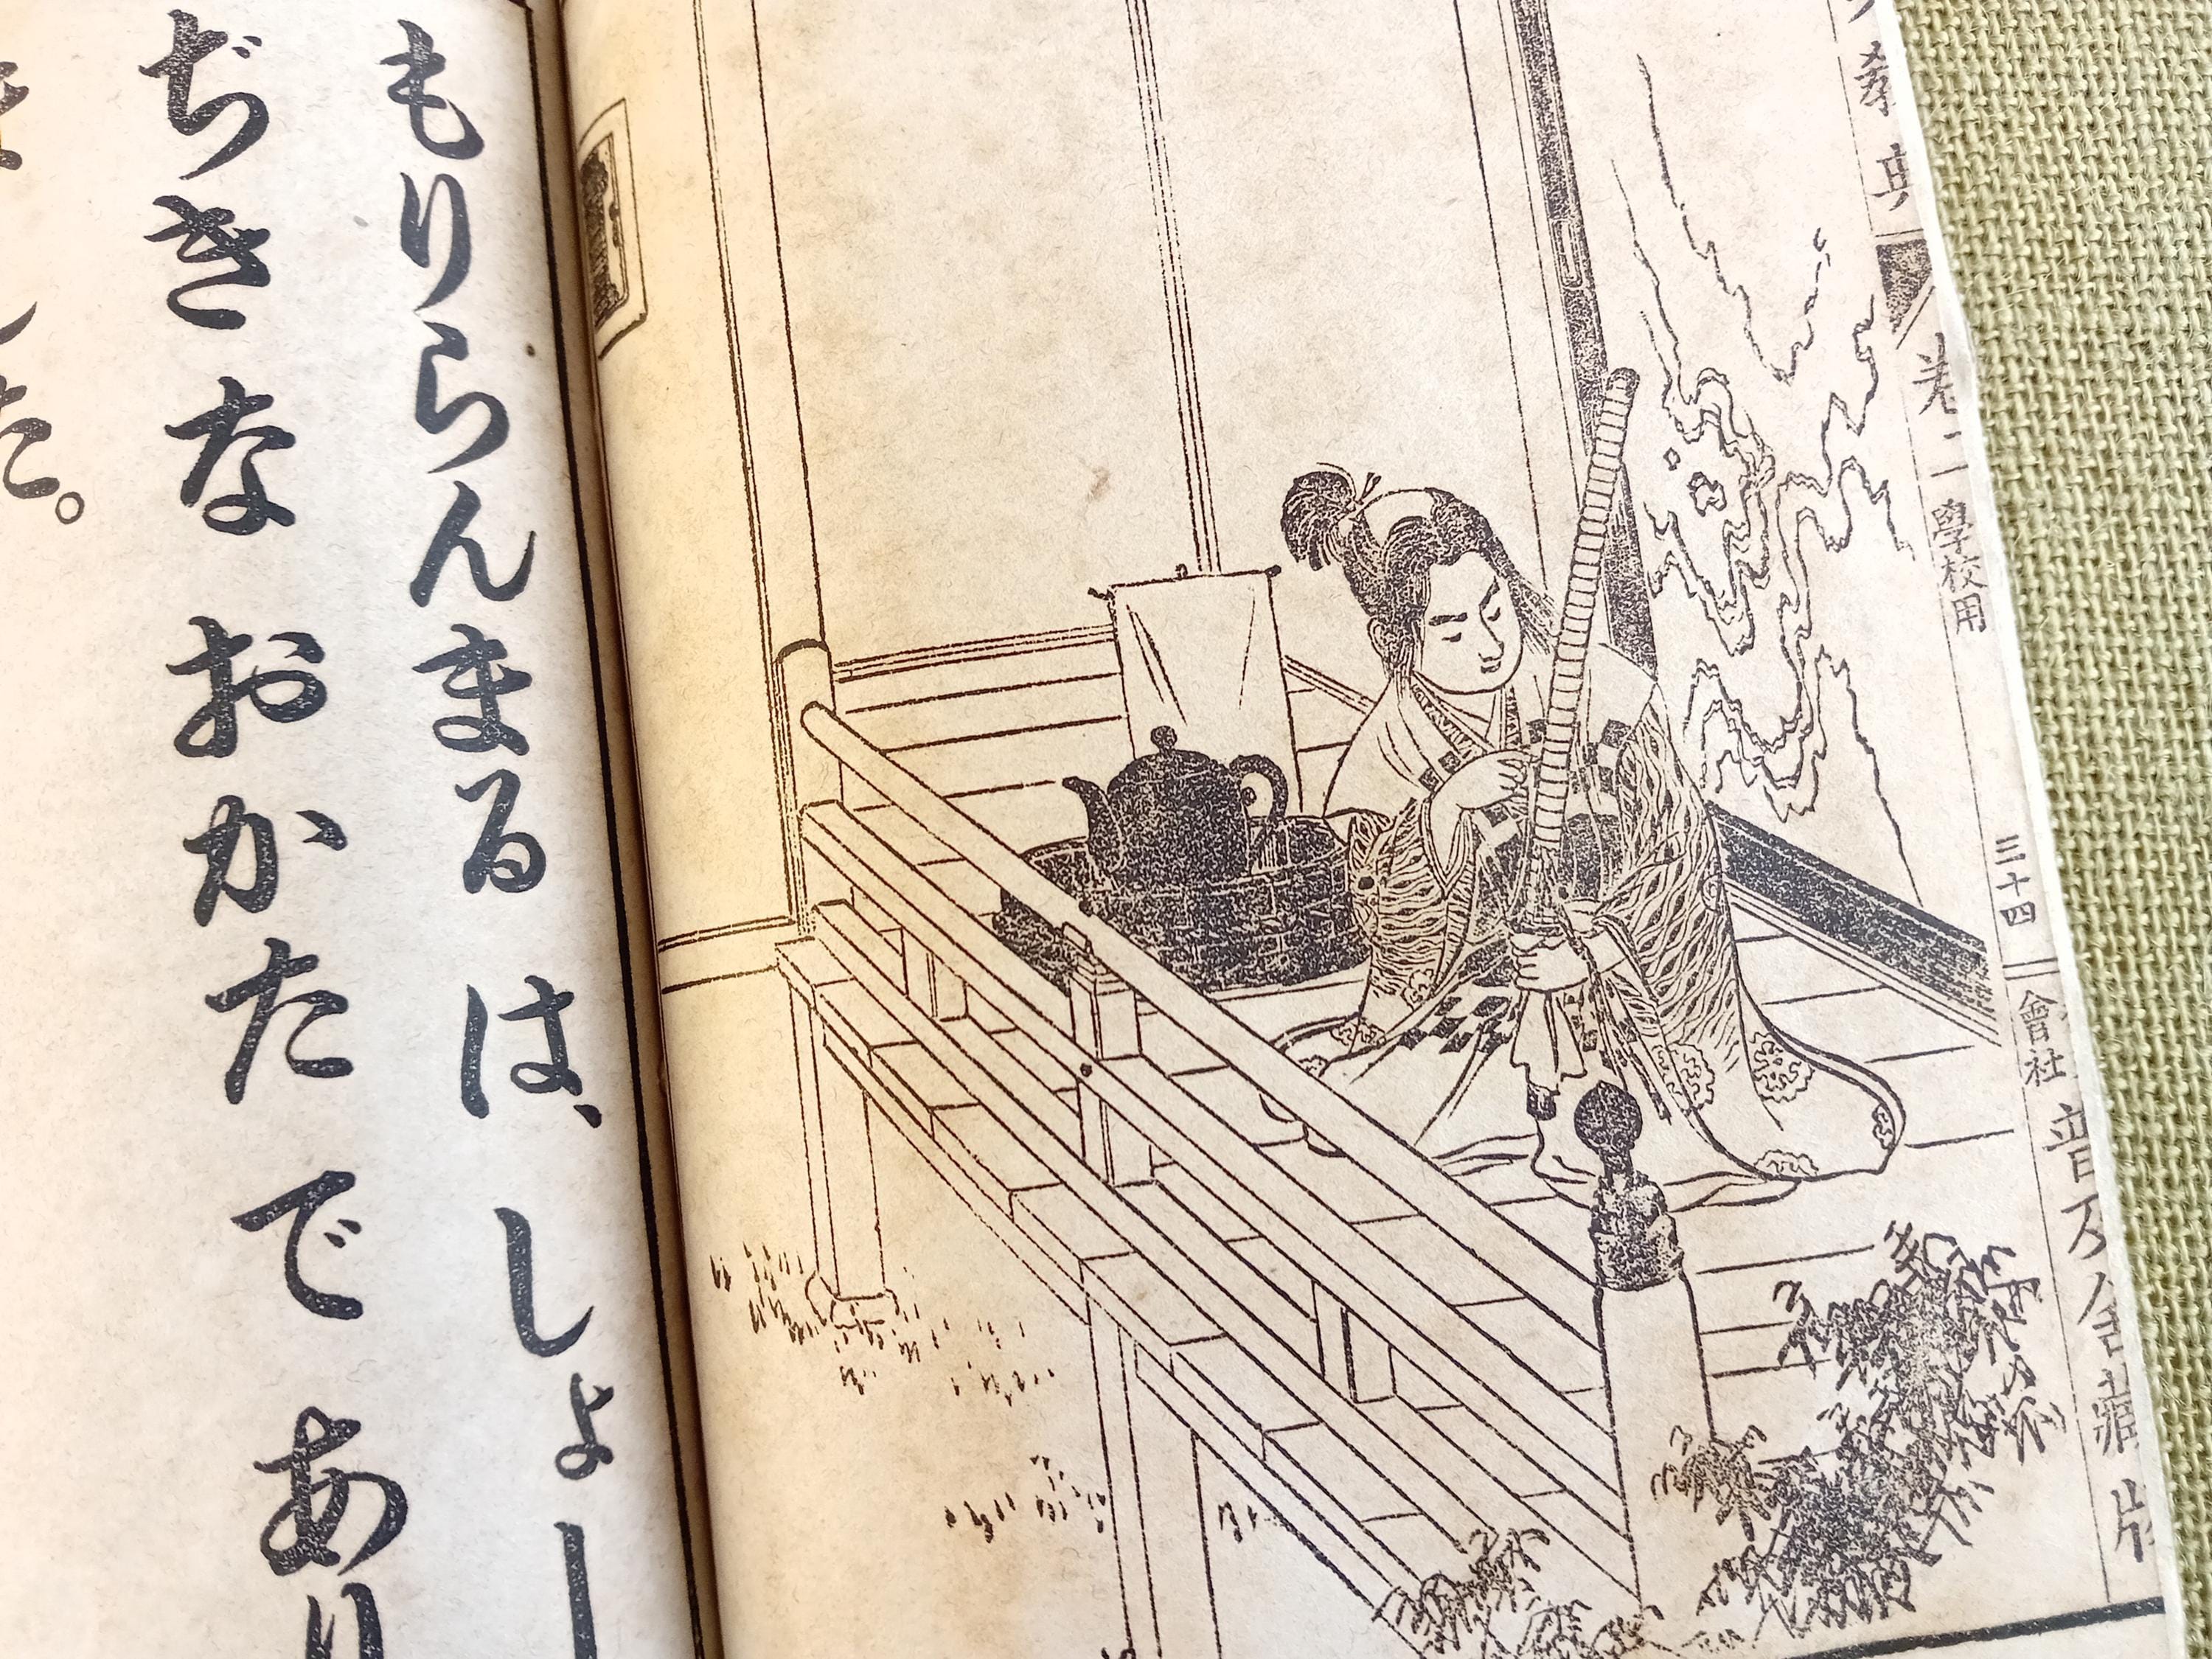 教典
卷二
學校用
三十四
會社
普及舍藏版
もりらんまるは、しょー
ぢきなおかたであり
した。